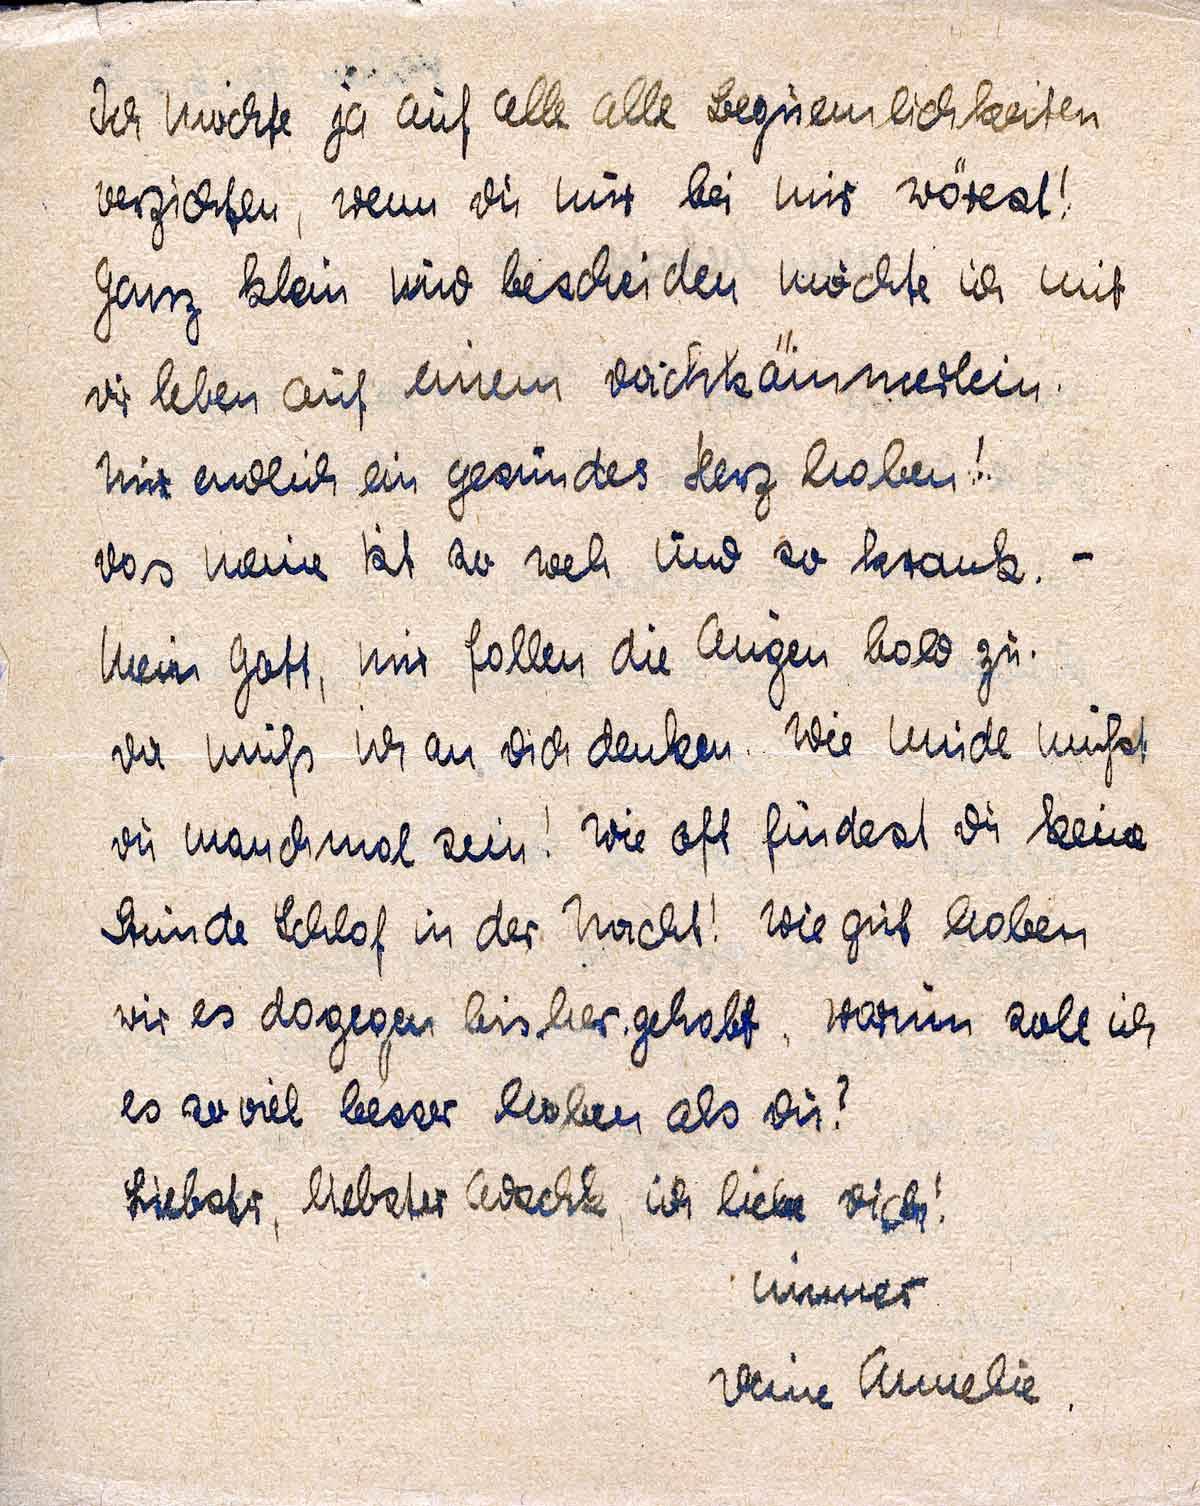 Ich möchte ja auf alle alle Bequemlichkeiten
verzichten, wenn du nur bei mir wärest!
Ganz klein und bescheiden möchte ich mit
dir leben auf einem Dachkämmerlein.
Nur endlich ein gesundes Herz haben!
Das meine ist so weh und so krank. –
Mein Gott, mir fallen die Augen bald zu.
Da muß ich an dich denken. Wie müde mußt
du manchmal sein! Wie oft findest du keine
Stunde Schlaf in der Nacht! Wie gut haben
wir es dagegen bisher gehabt. Warum soll ich
es so viel besser haben als du?
Liebster, liebster ich liebe dich!
immer
Deine Annelie.